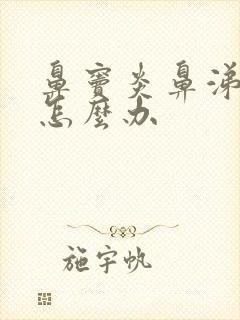 鼻窦炎鼻涕
怎麼办
施宇帆